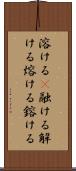 溶ける 融ける解
ける熔ける鎔ける